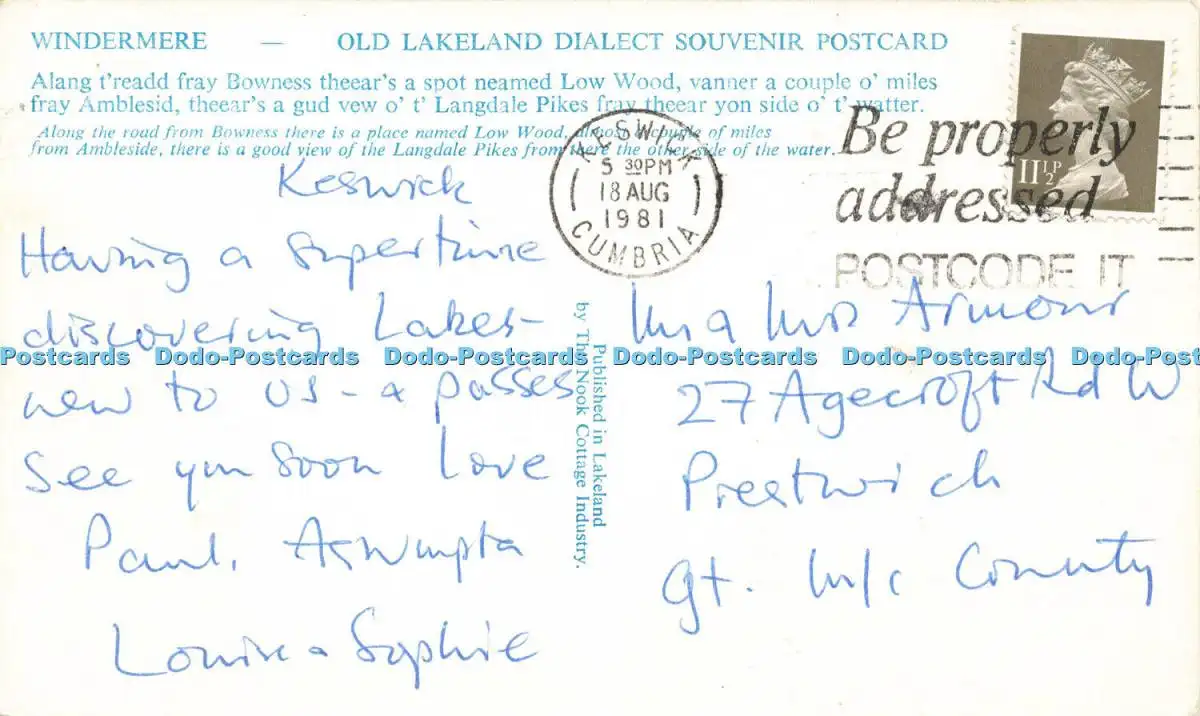 WINDERMERE — OLD LAKELAND DIALECT SOUVENIR POSTCARD
Alang t'readd fray Bowness theear's a spot neamed Low Wood, vanner a couple o' miles
fray Amblesid, theear's a gud vew o' t' Langdale Pikes fray theear yon side o' t' watter.
Along the road from Bowness there is a place named Low Wood, almost a couple of miles
from Ambleside, there is a good view of the Langdale Pikes from there the other side of the water.
KESWICK
5 30PM
18 AUG
1981
CUMBRIA
Be properly
addressed
POSTCODE IT
11½P
Keswick
Having a super time
discovering Lakes -
new to us - & passes
See you soon Love
Paul, Assumpta
Louise & Sophie
Published in Lakeland
by The Nook Cottage Industry.
Mr & Mrs Armour
27 Agecroft Rd W
Prestwich
Gt. M/c County
Postcards Dodo-Postcards Dodo-Postcards Dodo-Postcards Dodo-Postcards Dodo-Post